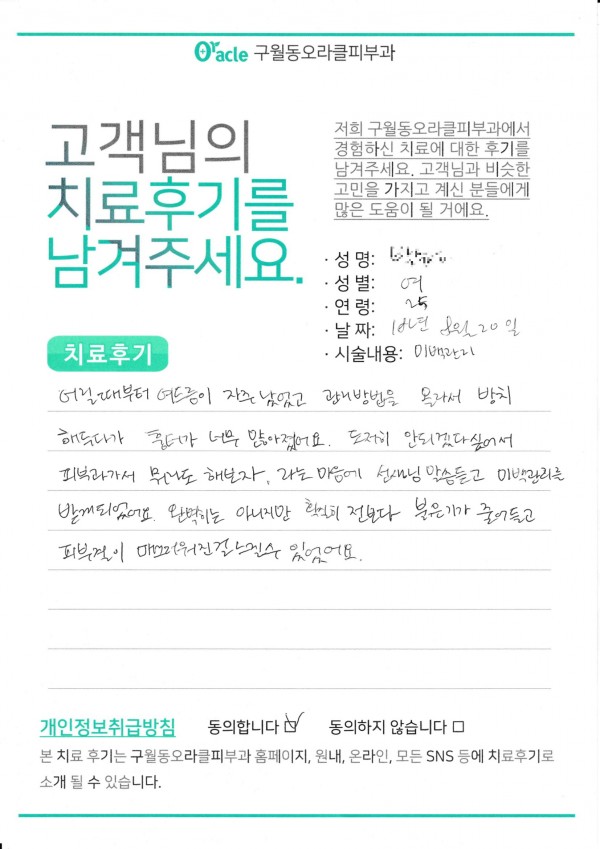 Oracle 구월동오라클피부과
고객님의
치료후기를
남겨주세요.
저희 구월동오라클피부과에서
경험하신 치료에 대한 후기를
남겨주세요. 고객님과 비슷한
고민을 가지고 계신 분들에게
많은 도움이 될 거에요.
· 성 명:
· 성 별: 여
· 연 령: 25
· 날 짜: 18년 8월 20일
· 시술내용: 미백관리
치료후기
어릴때부터 여드름이 자주 났었고 관리방법을 몰라서 방치
해두다가 흉터가 너무 많아졌어요. 도저히 안되겠다싶어서
피부과가서 뭐라도 해보자, 라는 마음에 선생님 말씀듣고 미백관리를
받게되었어요. 완벽히는 아니지만 확실히 전보다 붉은기가 줄어들고
피부결이 매끄러워진걸느낄수 있었어요.
개인정보취급방침 동의합니다 ☑ 동의하지 않습니다 □
본 치료 후기는 구월동오라클피부과 홈페이지, 원내, 온라인, 모든 SNS 등에 치료후기로
소개 될 수 있습니다.